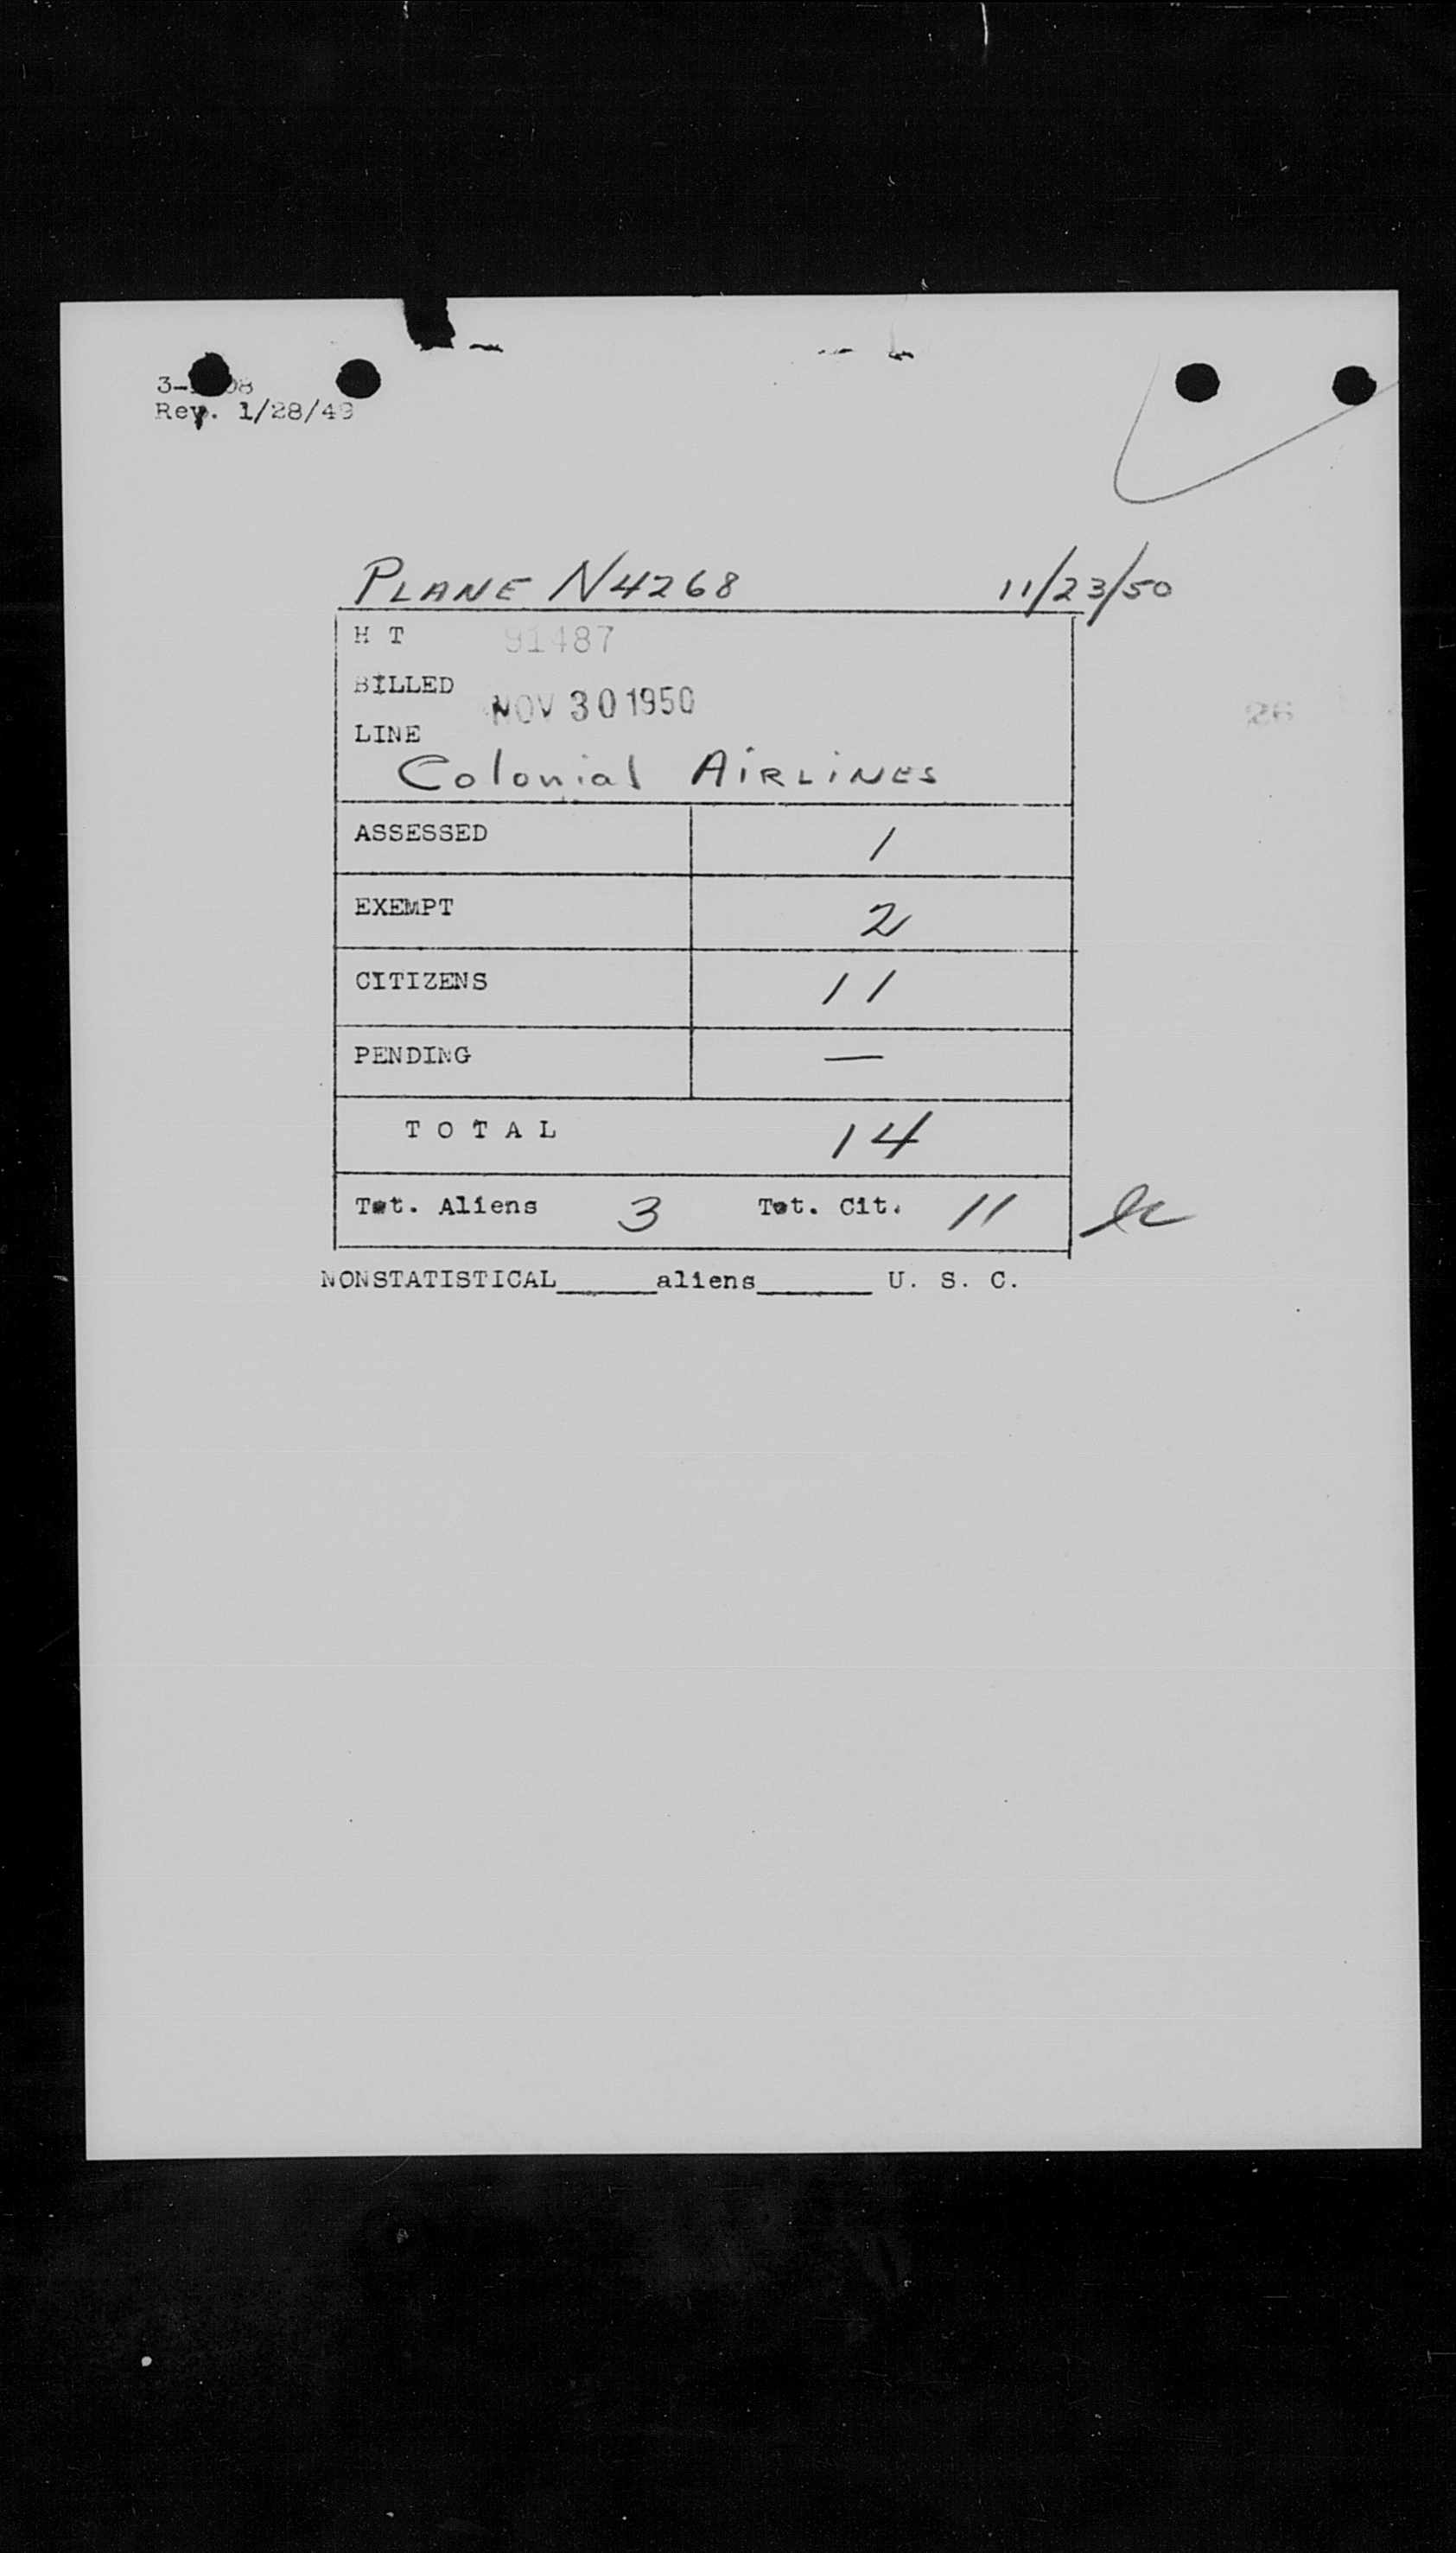 Rev. 1/28/49
PLANE N4268 11/23/50
H T 91487
BILLED
NOV 30 1950
LINE
Colonial AIRLINES
26
ASSESSED 1
EXEMPT 2
CITIZENS 11
PENDING —
TOTAL 14
Tot. Aliens 3 Tot. Cit. 11
NONSTATISTICAL_____aliens______ U. S. C.